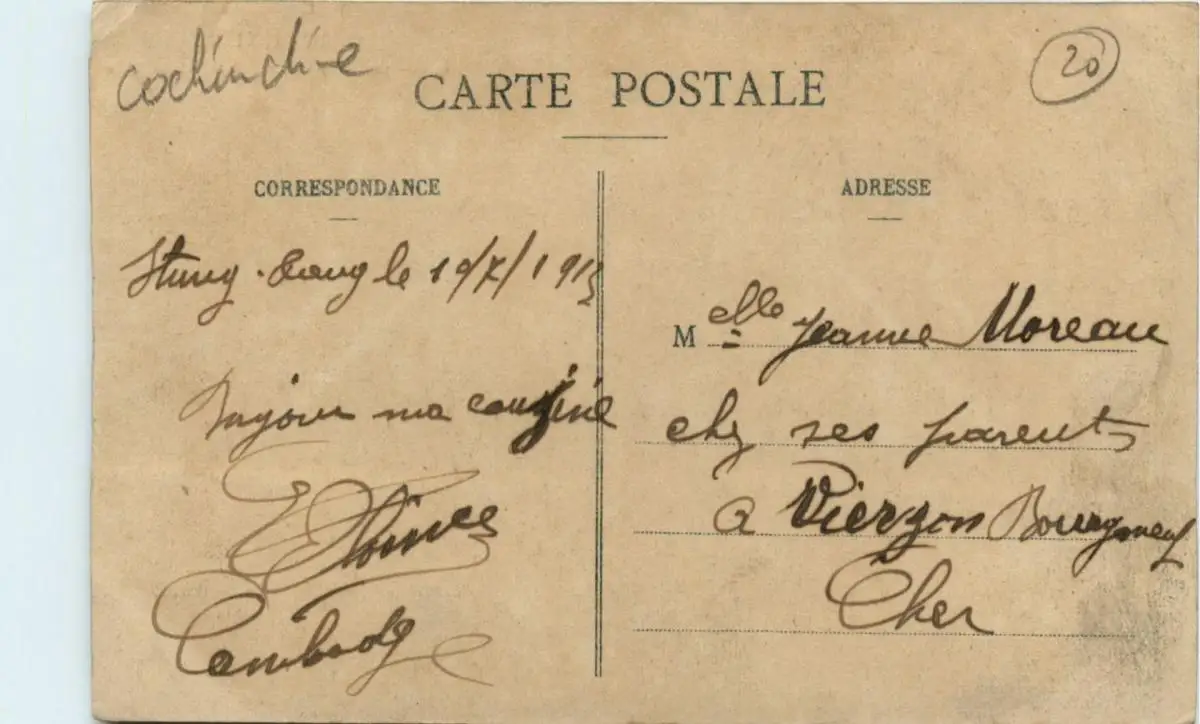 cochinchine
20
CARTE POSTALE
CORRESPONDANCE
Stung-Trang le 19/7/1913
Bonjour ma cousine
Cambodge
ADRESSE
Melle Jeanne Moreau
chez ses parents
à Vierzon Bourgneuf
Cher